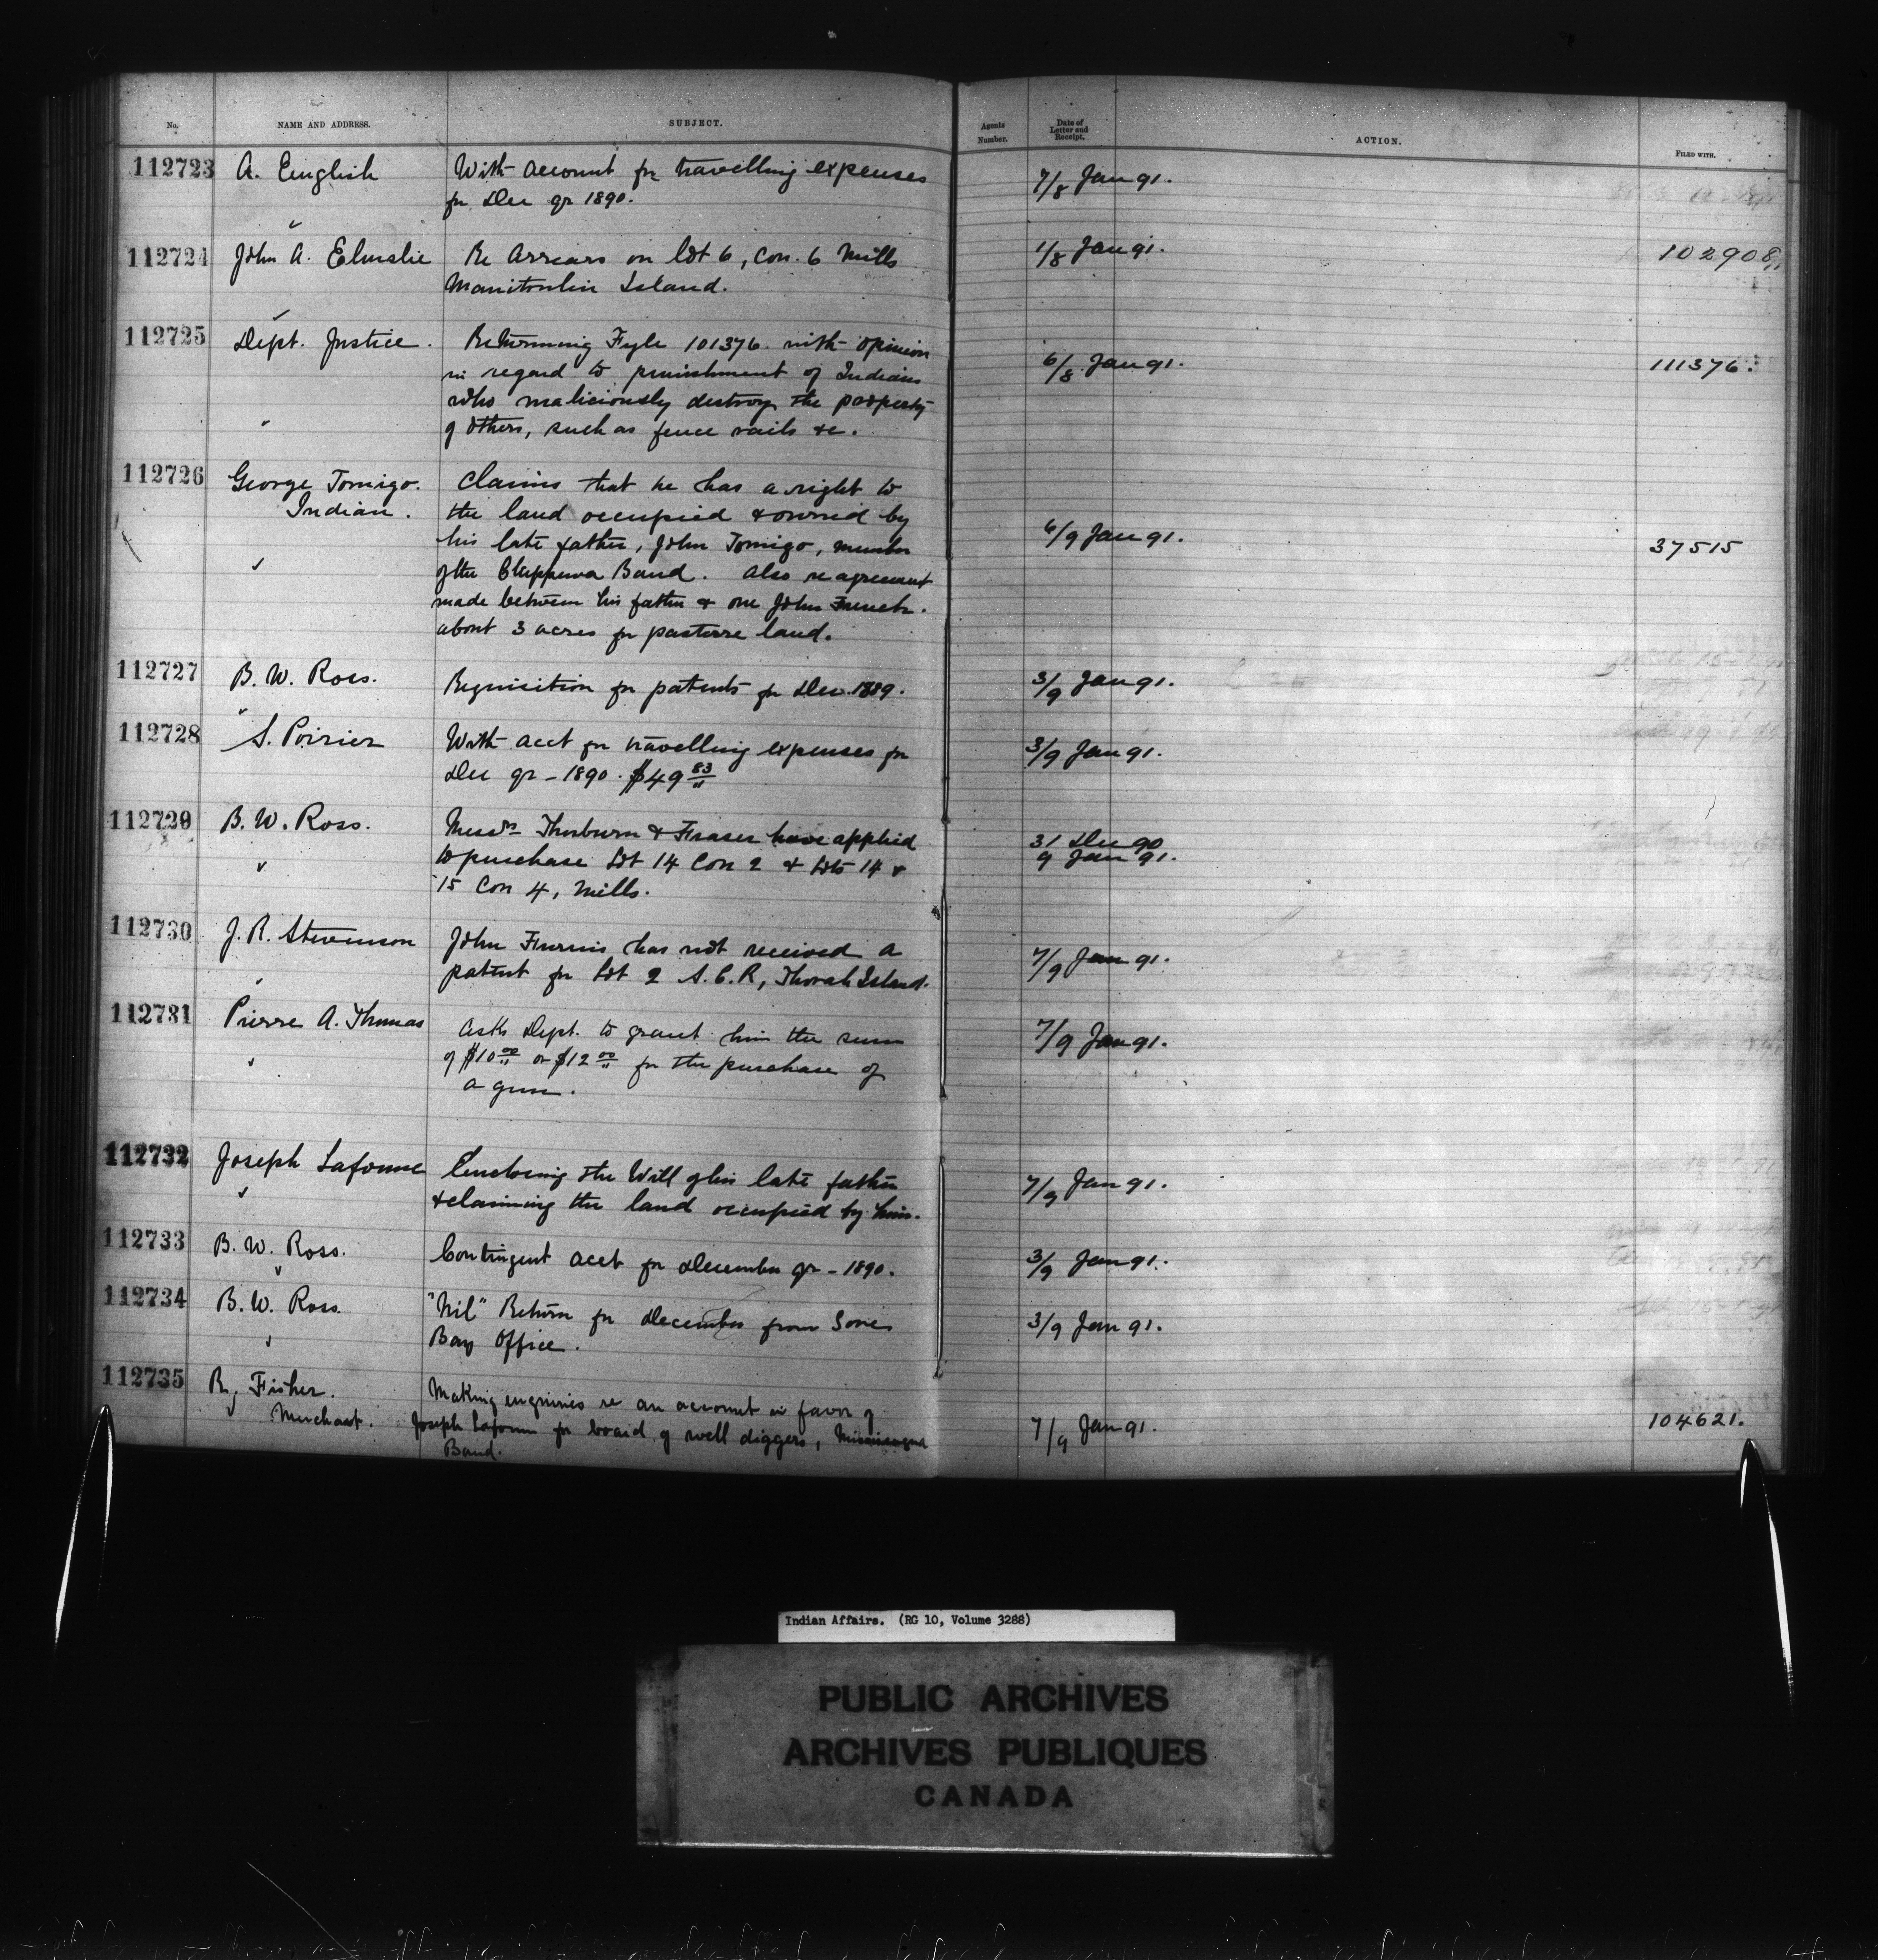 No. NAME AND ADDRESS. SUBJECT. Agents Number. Date of Letter and Receipt. ACTION. FILED WITH.
112723 A. English With account for travelling expenses 7/8 Jan 91.
for Dec qr 1890.
112724 John A. Elmslie Re Arrears on Lot 6, Con. 6 Mills 1/8 Jan 91. 102908
Manitoulin Island.
112725 Dept. Justice. Returning Fyle 101376 with opinion 6/8 Jan 91. 111376.
in regard to punishment of Indians
who maliciously destroy the property
of others, such as fence rails &c.
112726 George Tomigo. Claims that he has a right to
Indian. the land occupied & owned by
his late father, John Tomigo, member 6/9 Jan 91. 37515
of the Chippewa Band. Also re agreement
made between his father & one John French.
about 3 acres for pasture land.
112727 B. W. Ross. Requisition for patents for Dec. 1889. 3/9 Jan 91.
112728 S. Poirier With acct for travelling expenses for 3/9 Jan 91.
Dec qr - 1890. $49 83
112729 B. W. Ross. Messrs Thorburn & Fraser have applied 31 Dec 90
to purchase Lot 14 Con 2 & Lots 14 & 9 Jan 91.
15 Con 4, Mills.
112730 J. R. Stevenson John Furnis has not received a 7/9 Jan 91.
patent for Lot 2 S.C.R, Thorah Island.
112731 Pierre A. Thomas Asks Dept. to grant him the sum 7/9 Jan 91.
of $10 00 or $12 00 for the purchase of
a gun.
112732 Joseph Laforme Enclosing the Will of his late father 7/9 Jan 91.
& claiming the land occupied by him.
112733 B. W. Ross. Contingent acct for December qr - 1890. 3/9 Jan 91.
112734 B. W. Ross. "Nil" Return for December from Gore 3/9 Jan 91.
Bay Office.
112735 R. Fisher. Making enquiries re an account in favor of
Merchant. Joseph Laforme for board of well diggers, Mississagua 7/9 Jan 91. 104621.
Band.
Indian Affairs. (RG 10, Volume 3288)
PUBLIC ARCHIVES
ARCHIVES PUBLIQUES
CANADA